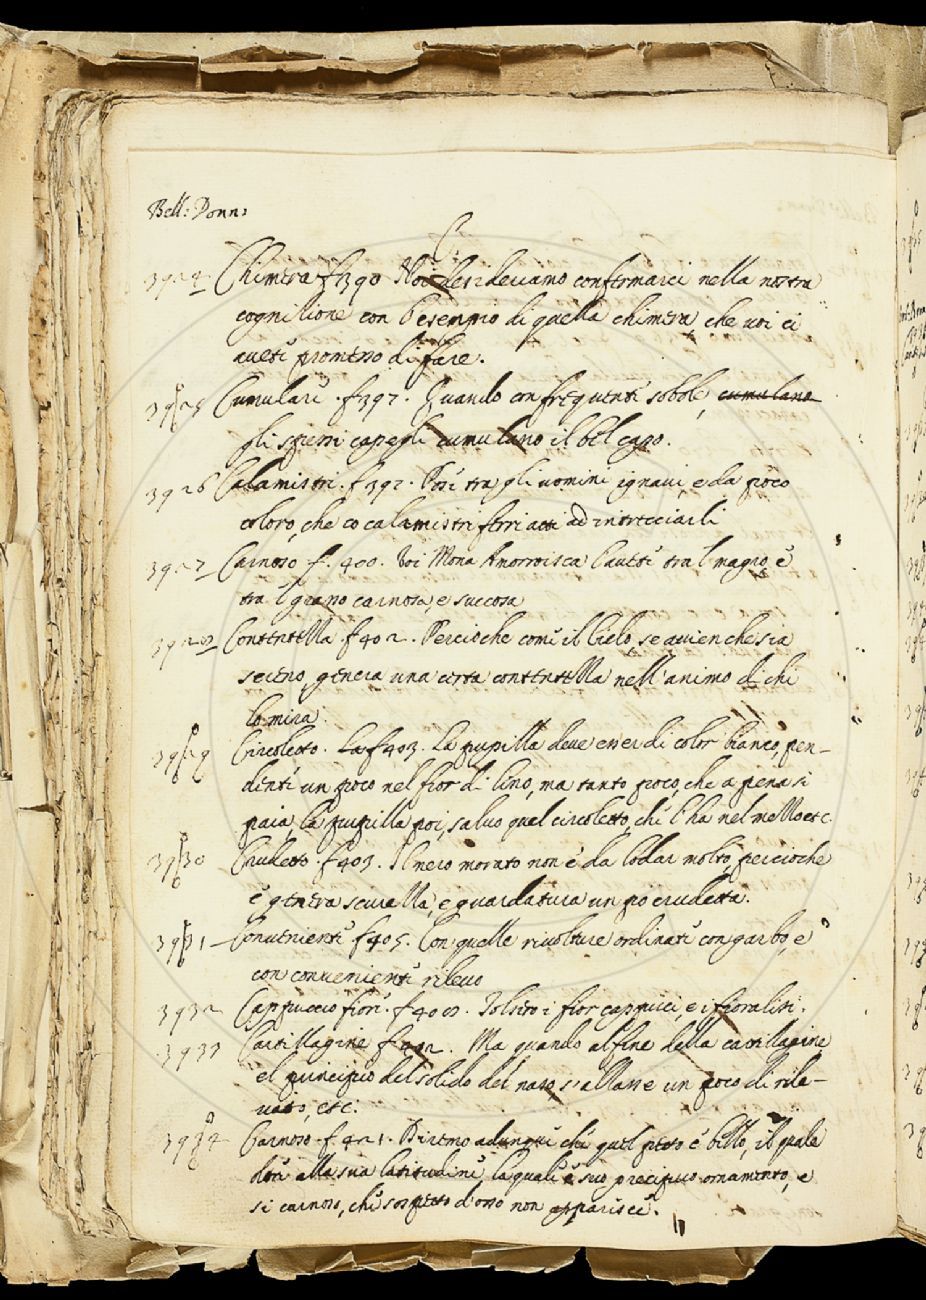 Bell: Donn:
C.
3924 Chimera f. 390 Noi desideriamo confermarci nella nostra
cognitione con l'esempio di quella chimera, che voi ci
avete promesso di fare.
3925 Cumulare. f. 397. Quando con frequenti sobole, cumulano
gli spessi capegli cumulano il bel capo.
3926 Calamistri. f. 392. Posi tra gli uomini ignavi, e da poco
coloro, che co calamistri ferri atti ad intrecciarli
3927 Carnoso f. 400. Voi Mona Amorroisca l'avete tra 'l magro, e
tra 'l grasso carnosa, e succosa
3928 Contentezza. f. 402. Percioche come il Cielo, se avien che sia
sereno, genera una certa contentezza nell'animo di chi
lo mira.
3929 Circoletto. La f. 403. La pupilla deve esser di color bianco, pen-
denti un poco nel fior di lino, ma tanto poco, che a pena si
paia, la pupilla poi, salvo quel circoletto, che l'ha nel mezzo etc.
3930 Crudetto. f. 403. Il nero morato non è da lodar molto, percioche
e genera scurezza, e guardatura un po crudetta.
3931 Convenienti f. 405. Con quelle rivolture ordinate con garbo, e
con convenienti rilevo
3932 Cappuccio fiore. f. 408. Tolsero i fior cappucci, e i fioralisi.
3933 Cartillagine f. Ma quando al fine della cartillagine
el principio del solido del naso s'allasse un poco di rile-
vato, etc.
3934 Carnoso. f. 421. Diremo adunque che quel peto è bello, il quale
oltre alla sua latitudine, la quale è suo precipuo ornamento, e
si carnoso, che sospetto d'osso non apparisce.